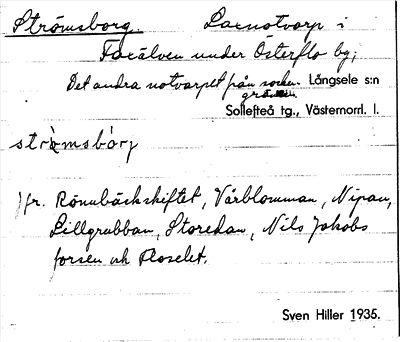 Strömsborg. Laxnotvarp i
Faxälven under Österflo by;
Det andra notvarpet från socken Långsele s:n
gränsen.
Sollefteå tg., Västernorrl. l.
strömsbórj
Jfr. Rönnbäckskiftet, Vårblomman, Nipan,
Lillgrubban, Storedan, Nils Jakobs
forsen och Floselet.
Sven Hiller 1935.